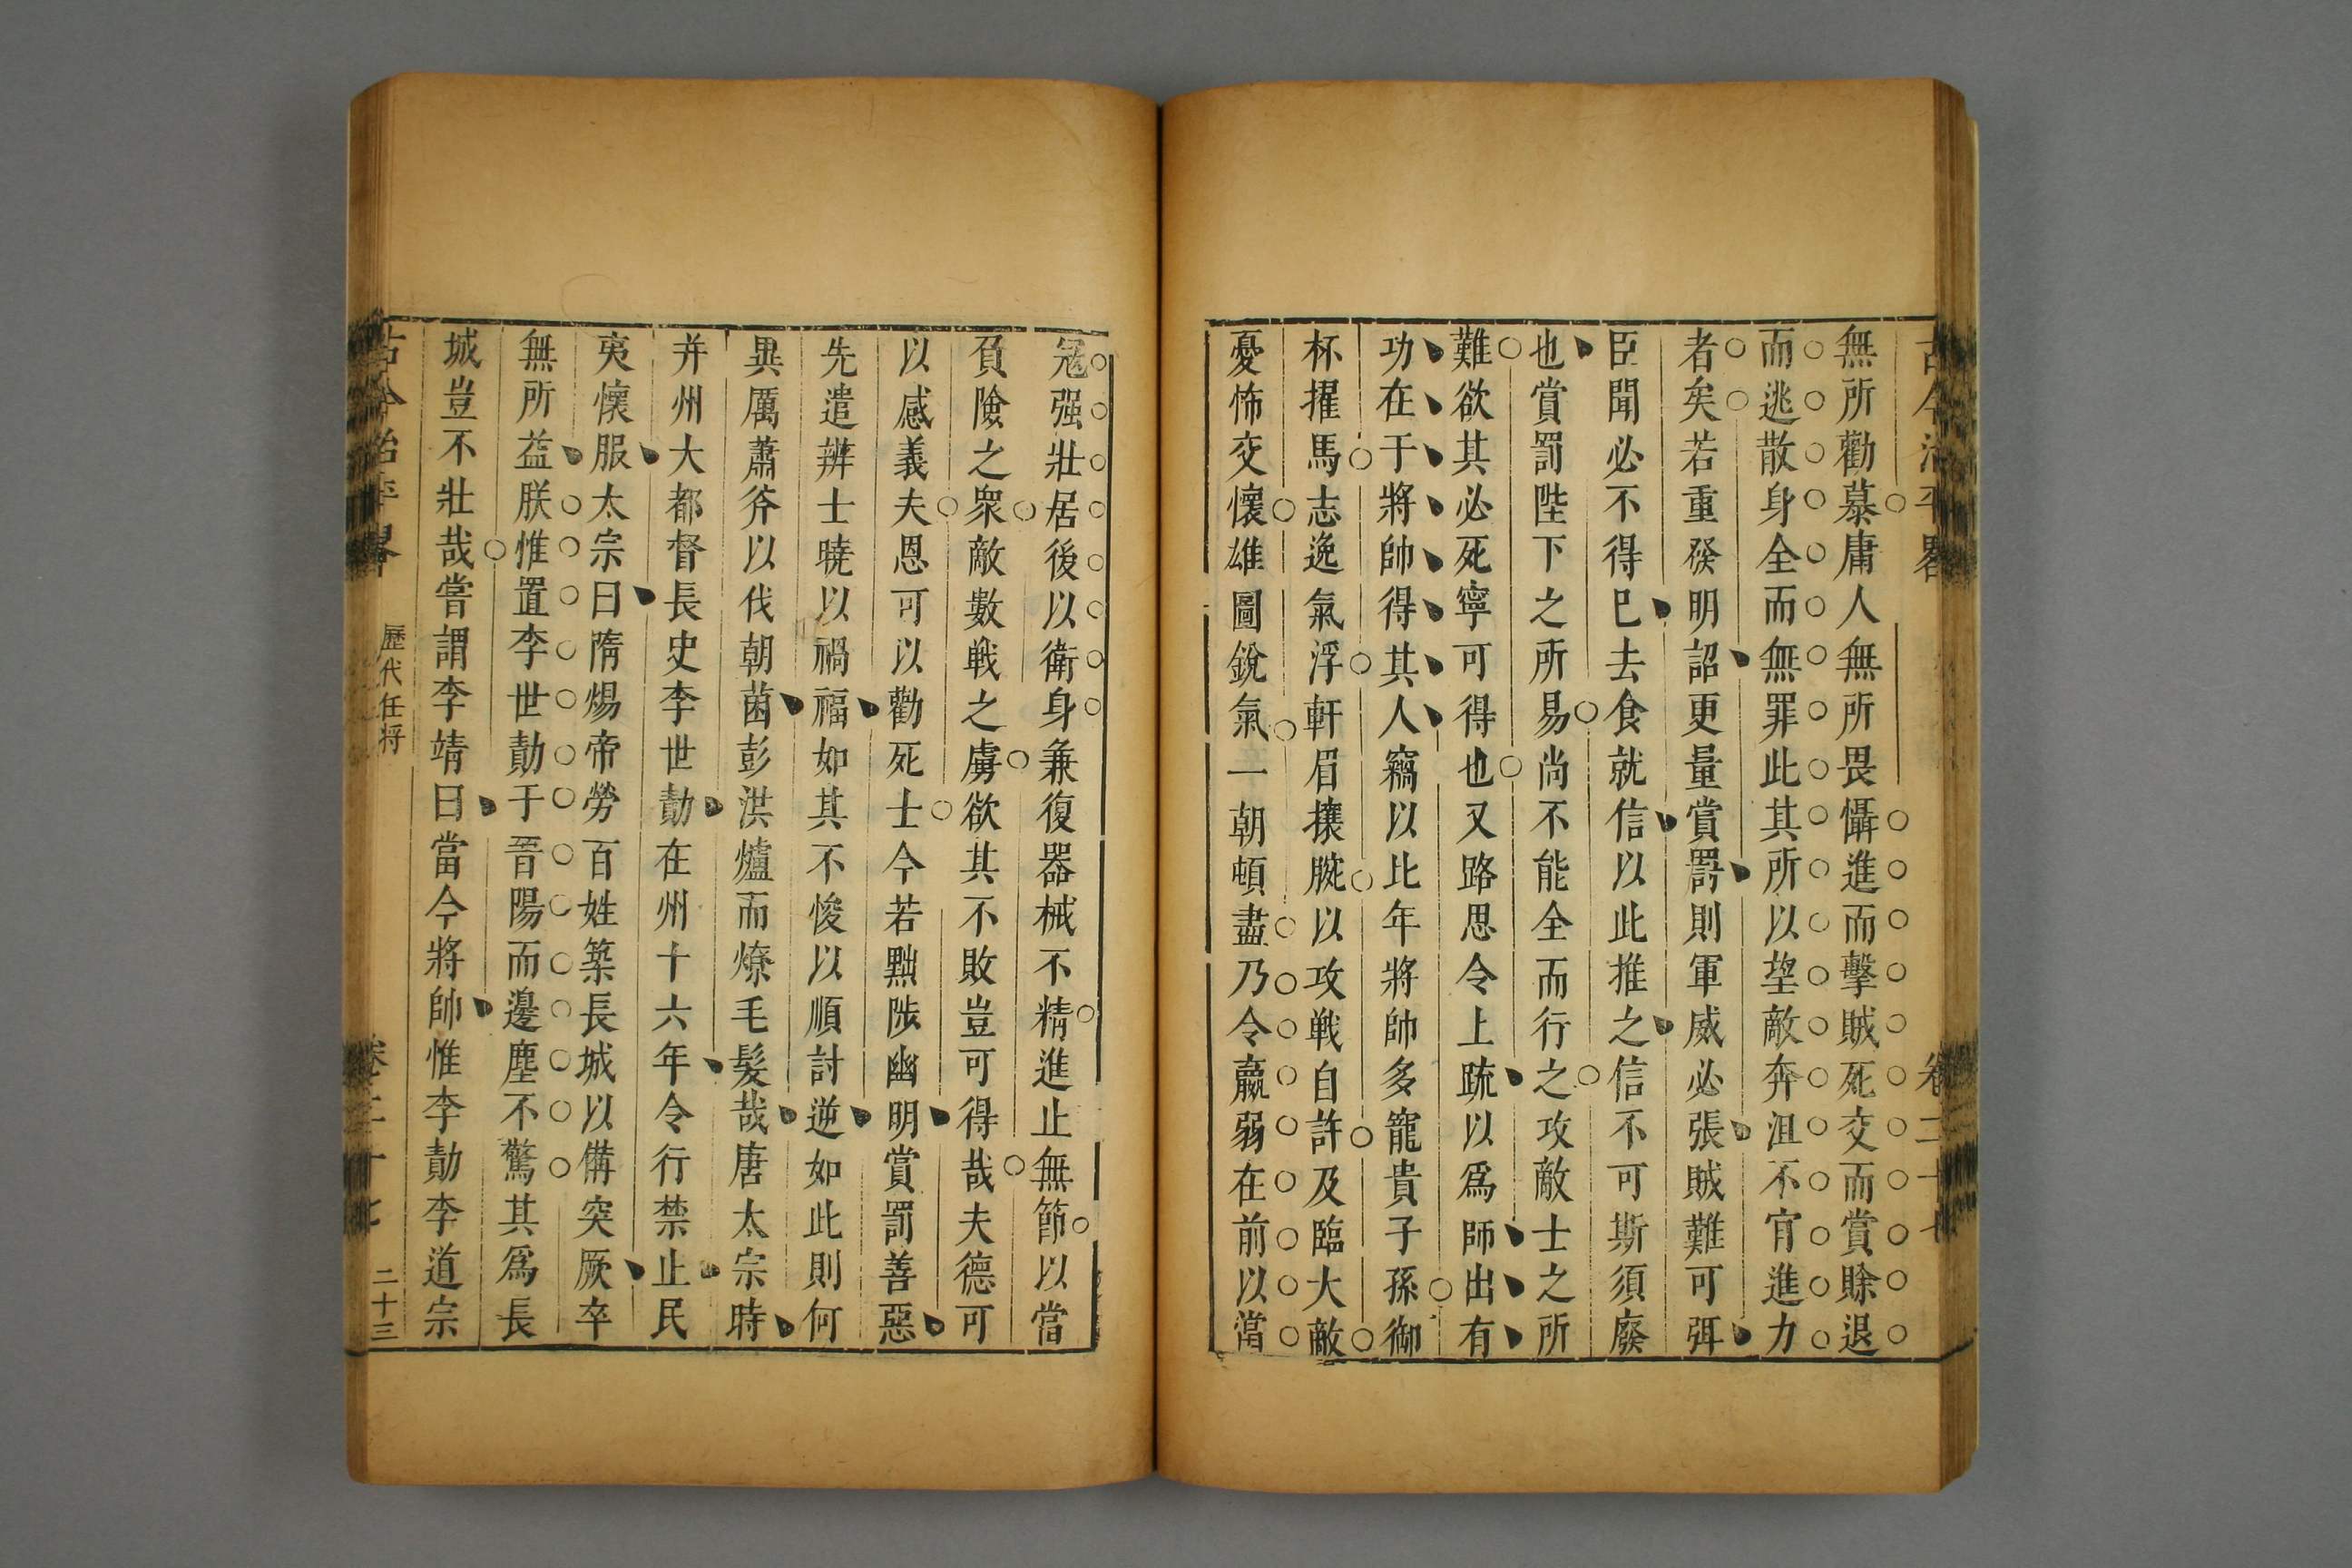 古今治平畧 卷二十七
無所勸慕庸人無所畏懾進而擊賊死交而賞賒退
而逃散身全而無罪此其所以望敵奔沮不肯進力
者矣若重發明詔更量賞罰則軍威必張賊難可弭
臣聞必不得已去食就信以此推之信不可斯須廢
也賞罰陛下之所易尚不能全而行之攻敵士之所
難欲其必死寧可得也又路思令上疏以爲師出有
功在于將帥得其人竊以比年將帥多寵貴子孫御
杯擢馬志逸氣浮軒眉攘腕以攻戰自許及臨大敵
憂怖交懷雄圖銳氣一朝頓盡乃令羸弱在前以當
冦强壯居後以衛身兼復器械不精進止無節以當
負險之衆敵數戦之虜欲其不敗豈可得哉夫德可
以感義夫恩可以勸死士今若黜陟幽明賞罰善惡
先遣辨士曉以禍福如其不悛以順討逆如此則何
異厲蕭斧以伐朝菌彭洪爐而燎毛髮哉唐太宗時
并州大都督長史李世勣在州十六年令行禁止民
夷懷服太宗曰隋煬帝勞百姓築長城以備突厥卒
無所益朕惟置李世勣于晉陽而邊塵不驚其爲長
城豈不壯哉嘗謂李靖曰當今將帥惟李勣李道宗
古今治平畧 歷代任將 卷二十七 二十三